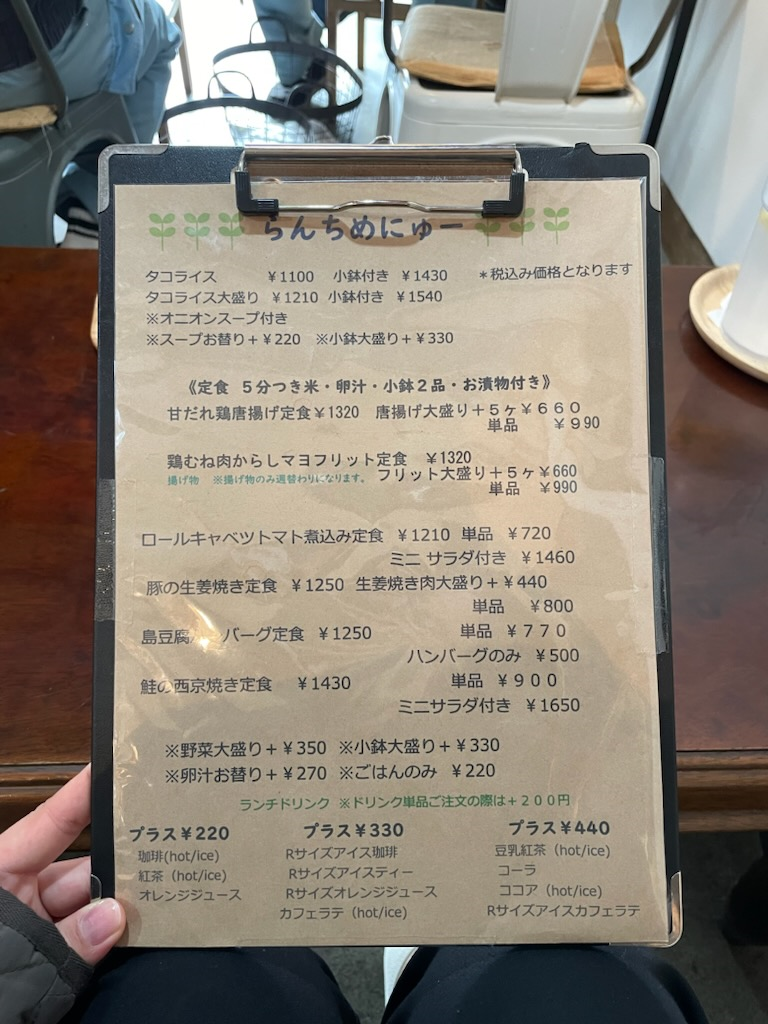 らんちめにゅー
タコライス ¥1100 小鉢付き ¥1430 *税込み価格となります
タコライス大盛り ¥1210 小鉢付き ¥1540
※オニオンスープ付き
※スープお替り+¥220 ※小鉢大盛り+¥330
《定食 5分つき米・卵汁・小鉢2品・お漬物付き》
甘だれ鶏唐揚げ定食¥1320 唐揚げ大盛り+5ヶ¥660
単品 ¥990
鶏むね肉からしマヨフリット定食 ¥1320
揚げ物 ※揚げ物のみ週替わりになります。 フリット大盛り+5ヶ¥660
単品 ¥990
ロールキャベツトマト煮込み定食 ¥1210 単品 ¥720
ミニ サラダ付き ¥1460
豚の生姜焼き定食 ¥1250 生姜焼き肉大盛り+¥440
単品 ¥800
島豆腐 バーグ定食 ¥1250 単品 ¥770
ハンバーグのみ ¥500
鮭の西京焼き定食 ¥1430 単品 ¥900
ミニサラダ付き ¥1650
※野菜大盛り+¥350 ※小鉢大盛り+¥330
※卵汁お替り+¥270 ※ごはんのみ ¥220
ランチドリンク ※ドリンク単品ご注文の際は+200円
プラス¥220
珈琲(hot/ice)
紅茶(hot/ice)
オレンジジュース
プラス¥330
Rサイズアイス珈琲
Rサイズアイスティー
Rサイズオレンジジュース
カフェラテ(hot/ice)
プラス¥440
豆乳紅茶(hot/ice)
コーラ
ココア(hot/ice)
Rサイズアイスカフェラテ